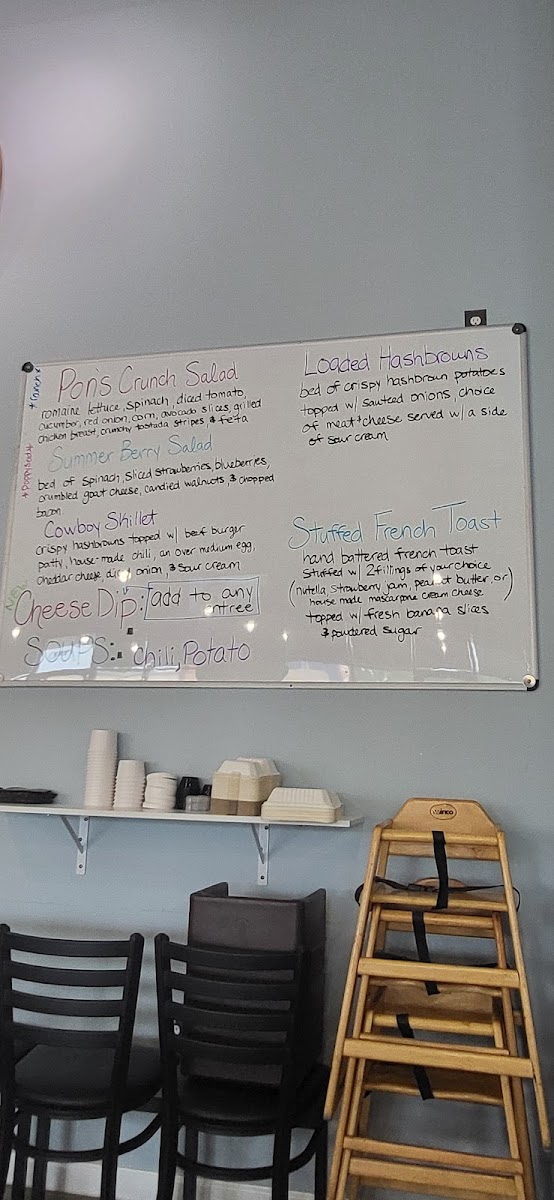 *crunch*
Pon's Crunch Salad
romaine lettuce, spinach, diced tomato,
cucumber, red onion, corn, avocado slices, grilled
chicken breast, crunchy tostada stripes, & feta
*Poppyseed*
Summer Berry Salad
bed of spinach, sliced strawberries, blueberries,
crumbled goat cheese, candied walnuts, & chopped
bacon
Cowboy Skillet
crispy hashbrowns topped w/ beef burger
patty, house-made chili, an over medium egg,
cheddar cheese, diced onion, & sour cream
NEW
Cheese Dip: add to any
entree
SOUPS: chili, Potato
Loaded Hashbrowns
bed of crispy hashbrown potatoes
topped w/ sauteed onions, choice
of meat + cheese served w/ a side
of sour cream
Stuffed French Toast
hand battered french toast
stuffed w/ 2 fillings of your choice
(nutella, strawberry jam, peanut butter, or
house made mascarpone cream cheese)
topped w/ fresh banana slices
& powdered sugar
WINCO